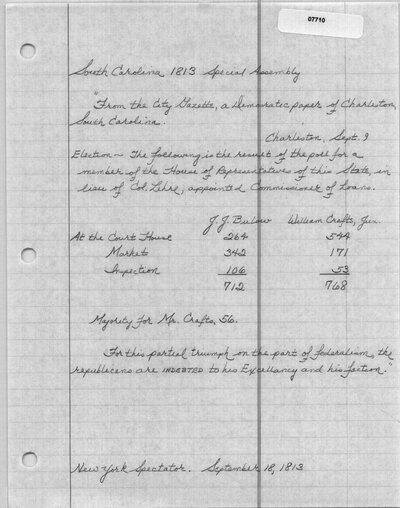 07710
South Carolina 1813 Special Assembly
"From the City Gazette, a Democratic paper of Charleston,
South Carolina.
Charleston, Sept. 9
Election - The following is the result of the poll for a
member of the House of Representatives of this State, in
lieu of Col. Lehre, appointed Commissioner of Loans.
J. J. Bulow William Crafts, Jun.
At the Court House 264 544
Market 342 171
Inspection 106 53
712 768
Majority for Mr. Crafts, 56.
For this partial triumph on the part of federalism, the
republicans are INDEBTED to his Excellancy and his faction."
New York Spectator. September 18, 1813